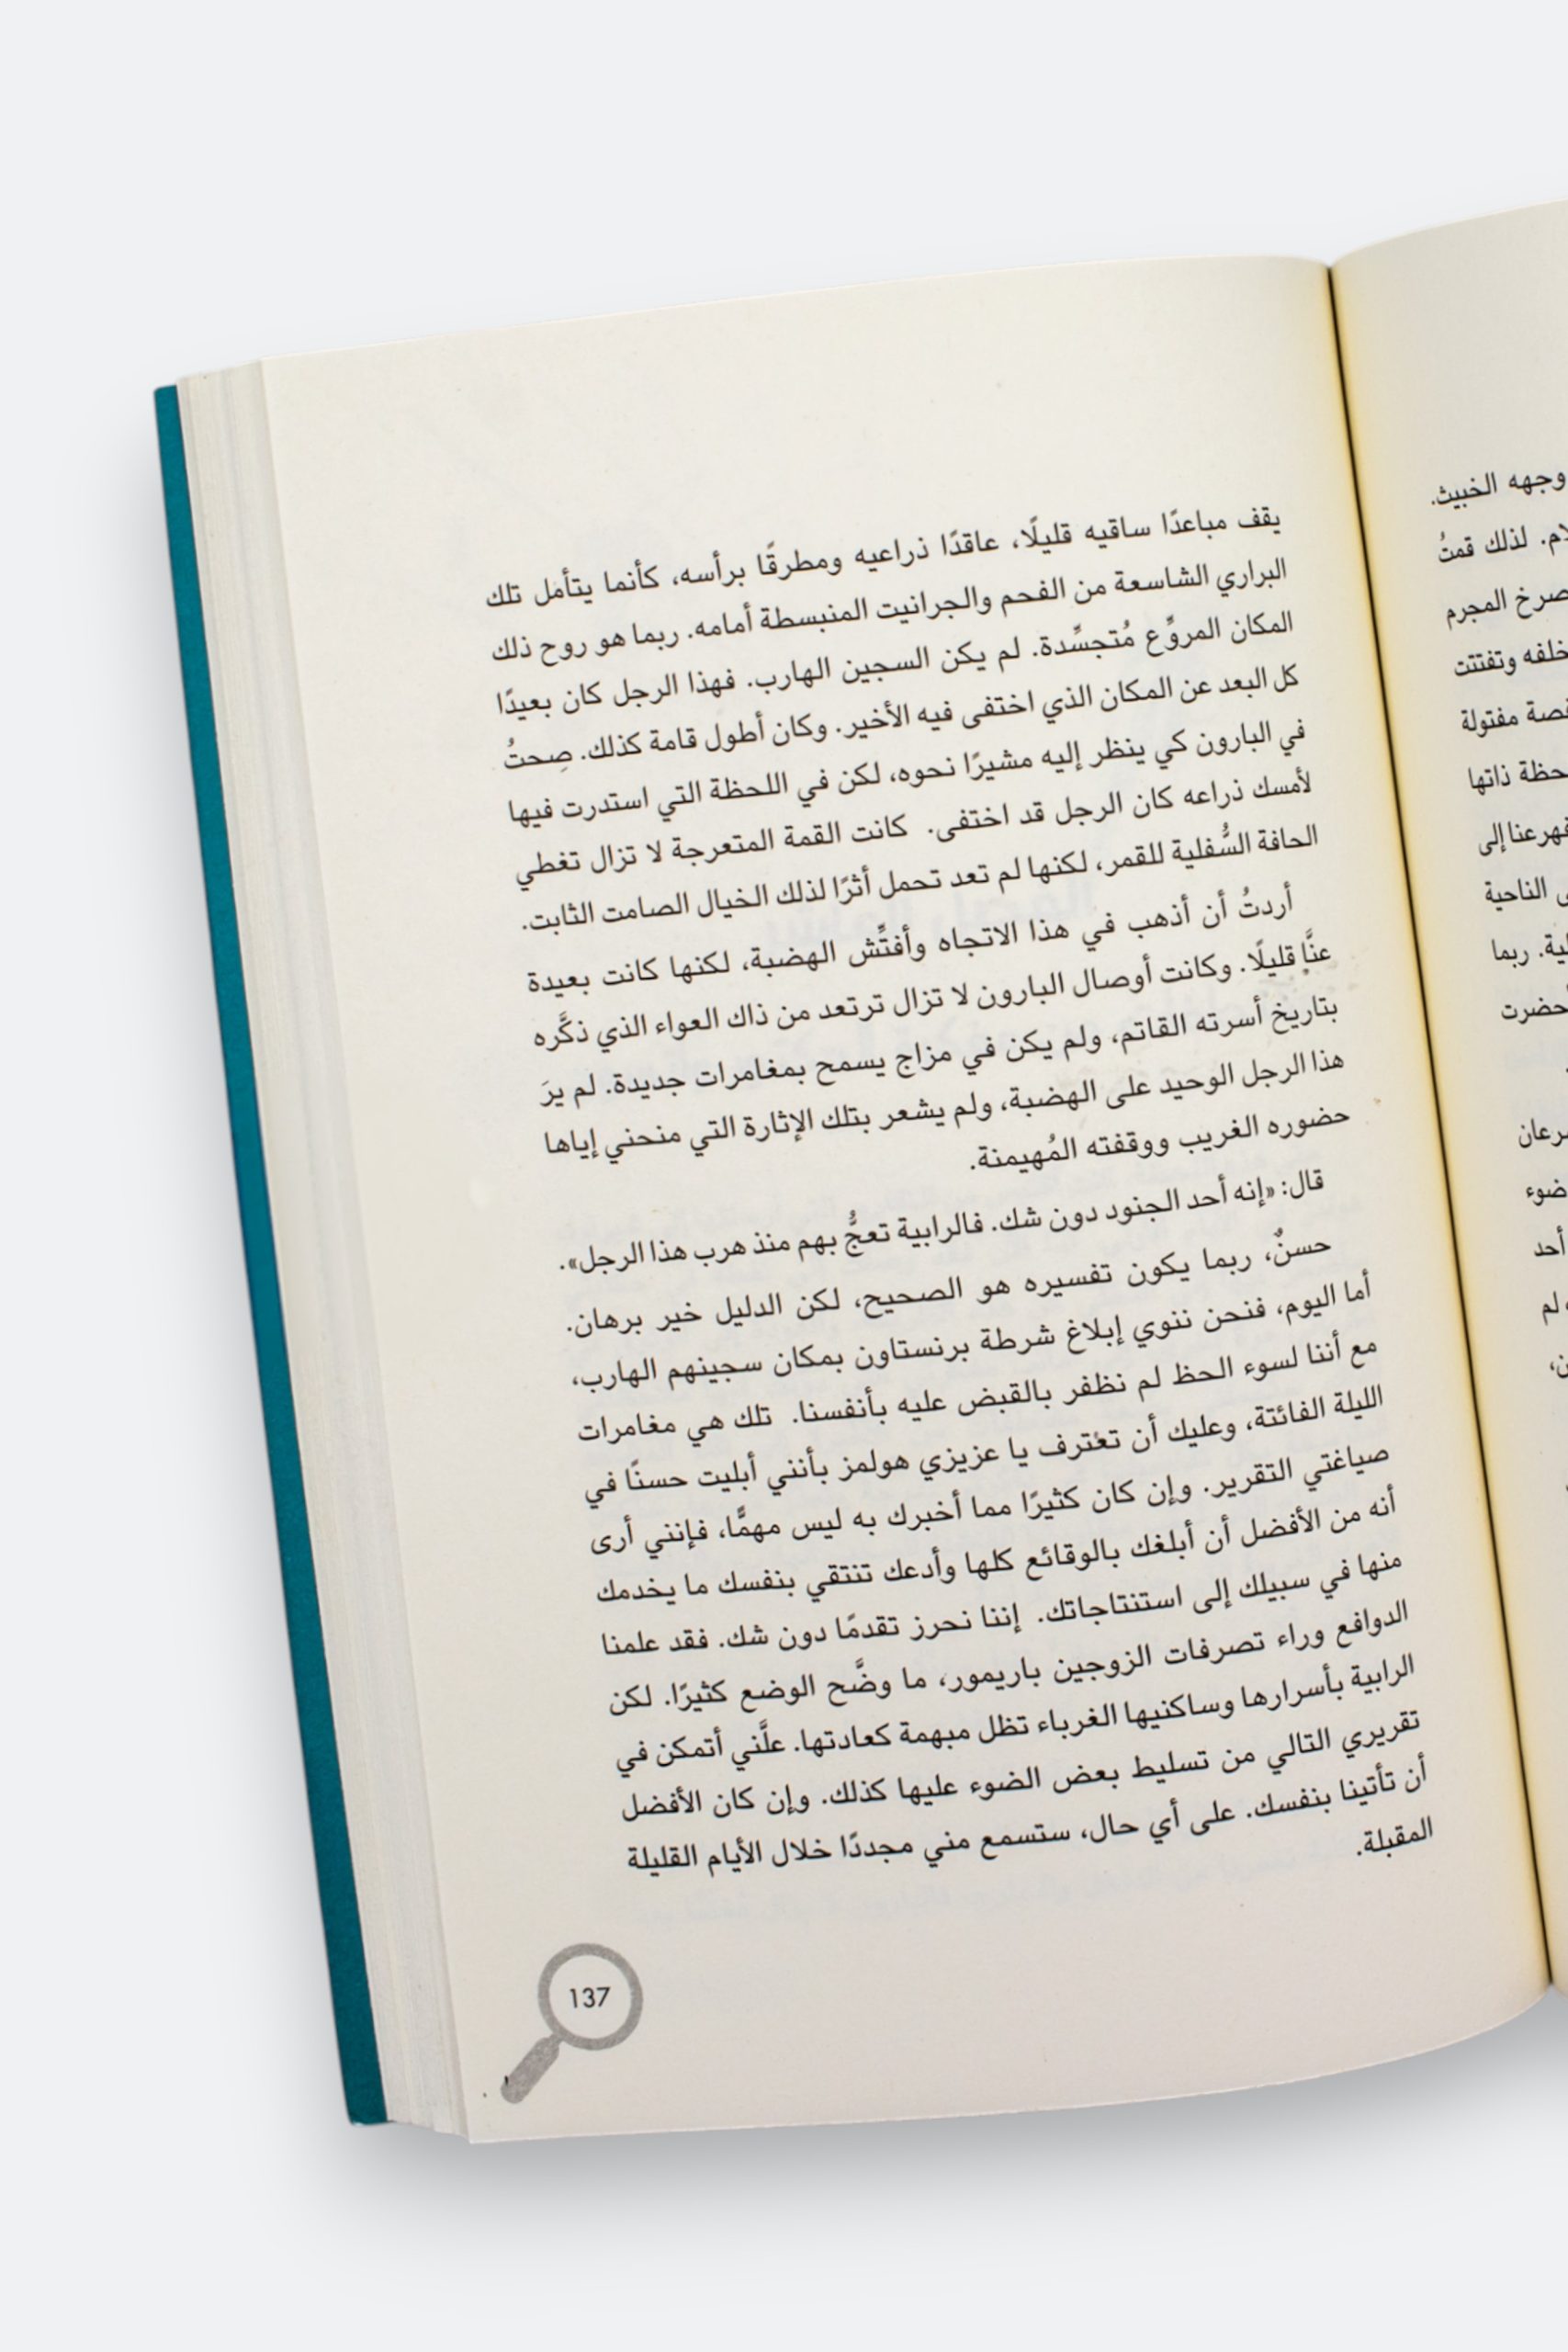 وجهه الخبيث.
لذلك قمتُ
صرخ المجرم
خلفه وتفتتت
مفتولة
ذاتها
فهرعنا إلى
الناحية
ربما
ضوء
أحد
لم
يقف مباعدًا ساقيه قليلًا، عاقدًا ذراعيه ومطرقًا برأسه، كأنما يتأمل تلك
البراري الشاسعة من الفحم والجرانيت المنبسطة أمامه. ربما هو روح ذلك
المكان المروِّع مُتجسِّدة. لم يكن السجين الهارب. فهذا الرجل كان بعيدًا
كل البعد عن المكان الذي اختفى فيه الأخير. وكان أطول قامة كذلك. صِحتُ
في البارون كي ينظر إليه مشيرًا نحوه، لكن في اللحظة التي استدرت فيها
لأمسك ذراعه كان الرجل قد اختفى. كانت القمة المتعرجة لا تزال تغطي
الحافة السُّفلية للقمر، لكنها لم تعد تحمل أثرًا لذلك الخيال الصامت الثابت.
أردتُ أن أذهب في هذا الاتجاه وأفتِّش الهضبة، لكنها كانت بعيدة
عنَّا قليلًا. وكانت أوصال البارون لا تزال ترتعد من ذاك العواء الذي ذكَّره
بتاريخ أسرته القاتم، ولم يكن في مزاج يسمح بمغامرات جديدة. لم يرَ
هذا الرجل الوحيد على الهضبة، ولم يشعر بتلك الإثارة التي منحني إياها
حضوره الغريب ووقفته المُهيمنة.
قال: «إنه أحد الجنود دون شك. فالرابية تعجُّ بهم منذ هرب هذا الرجل».
حسنٌ، ربما يكون تفسيره هو الصحيح، لكن الدليل خير برهان.
أما اليوم، فنحن ننوي إبلاغ شرطة برنستاون بمكان سجينهم الهارب،
مع أننا لسوء الحظ لم نظفر بالقبض عليه بأنفسنا. تلك هي مغامرات
الليلة الفائتة، وعليك أن تعترف يا عزيزي هولمز بأنني أبليت حسنًا في
صياغتي التقرير. وإن كان كثيرًا مما أخبرك به ليس مهمًّا، فإنني أرى
أنه من الأفضل أن أبلغك بالوقائع كلها وأدعك تنتقي بنفسك ما يخدمك
منها في سبيلك إلى استنتاجاتك. إننا نحرز تقدمًا دون شك. فقد علمنا
الدوافع وراء تصرفات الزوجين باريمور، ما وضَّح الوضع كثيرًا. لكن
الرابية بأسرارها وساكنيها الغرباء تظل مبهمة كعادتها. علَّني أتمكن في
تقريري التالي من تسليط بعض الضوء عليها كذلك. وإن كان الأفضل
أن تأتينا بنفسك. على أي حال، ستسمع مني مجددًا خلال الأيام القليلة
المقبلة.
137